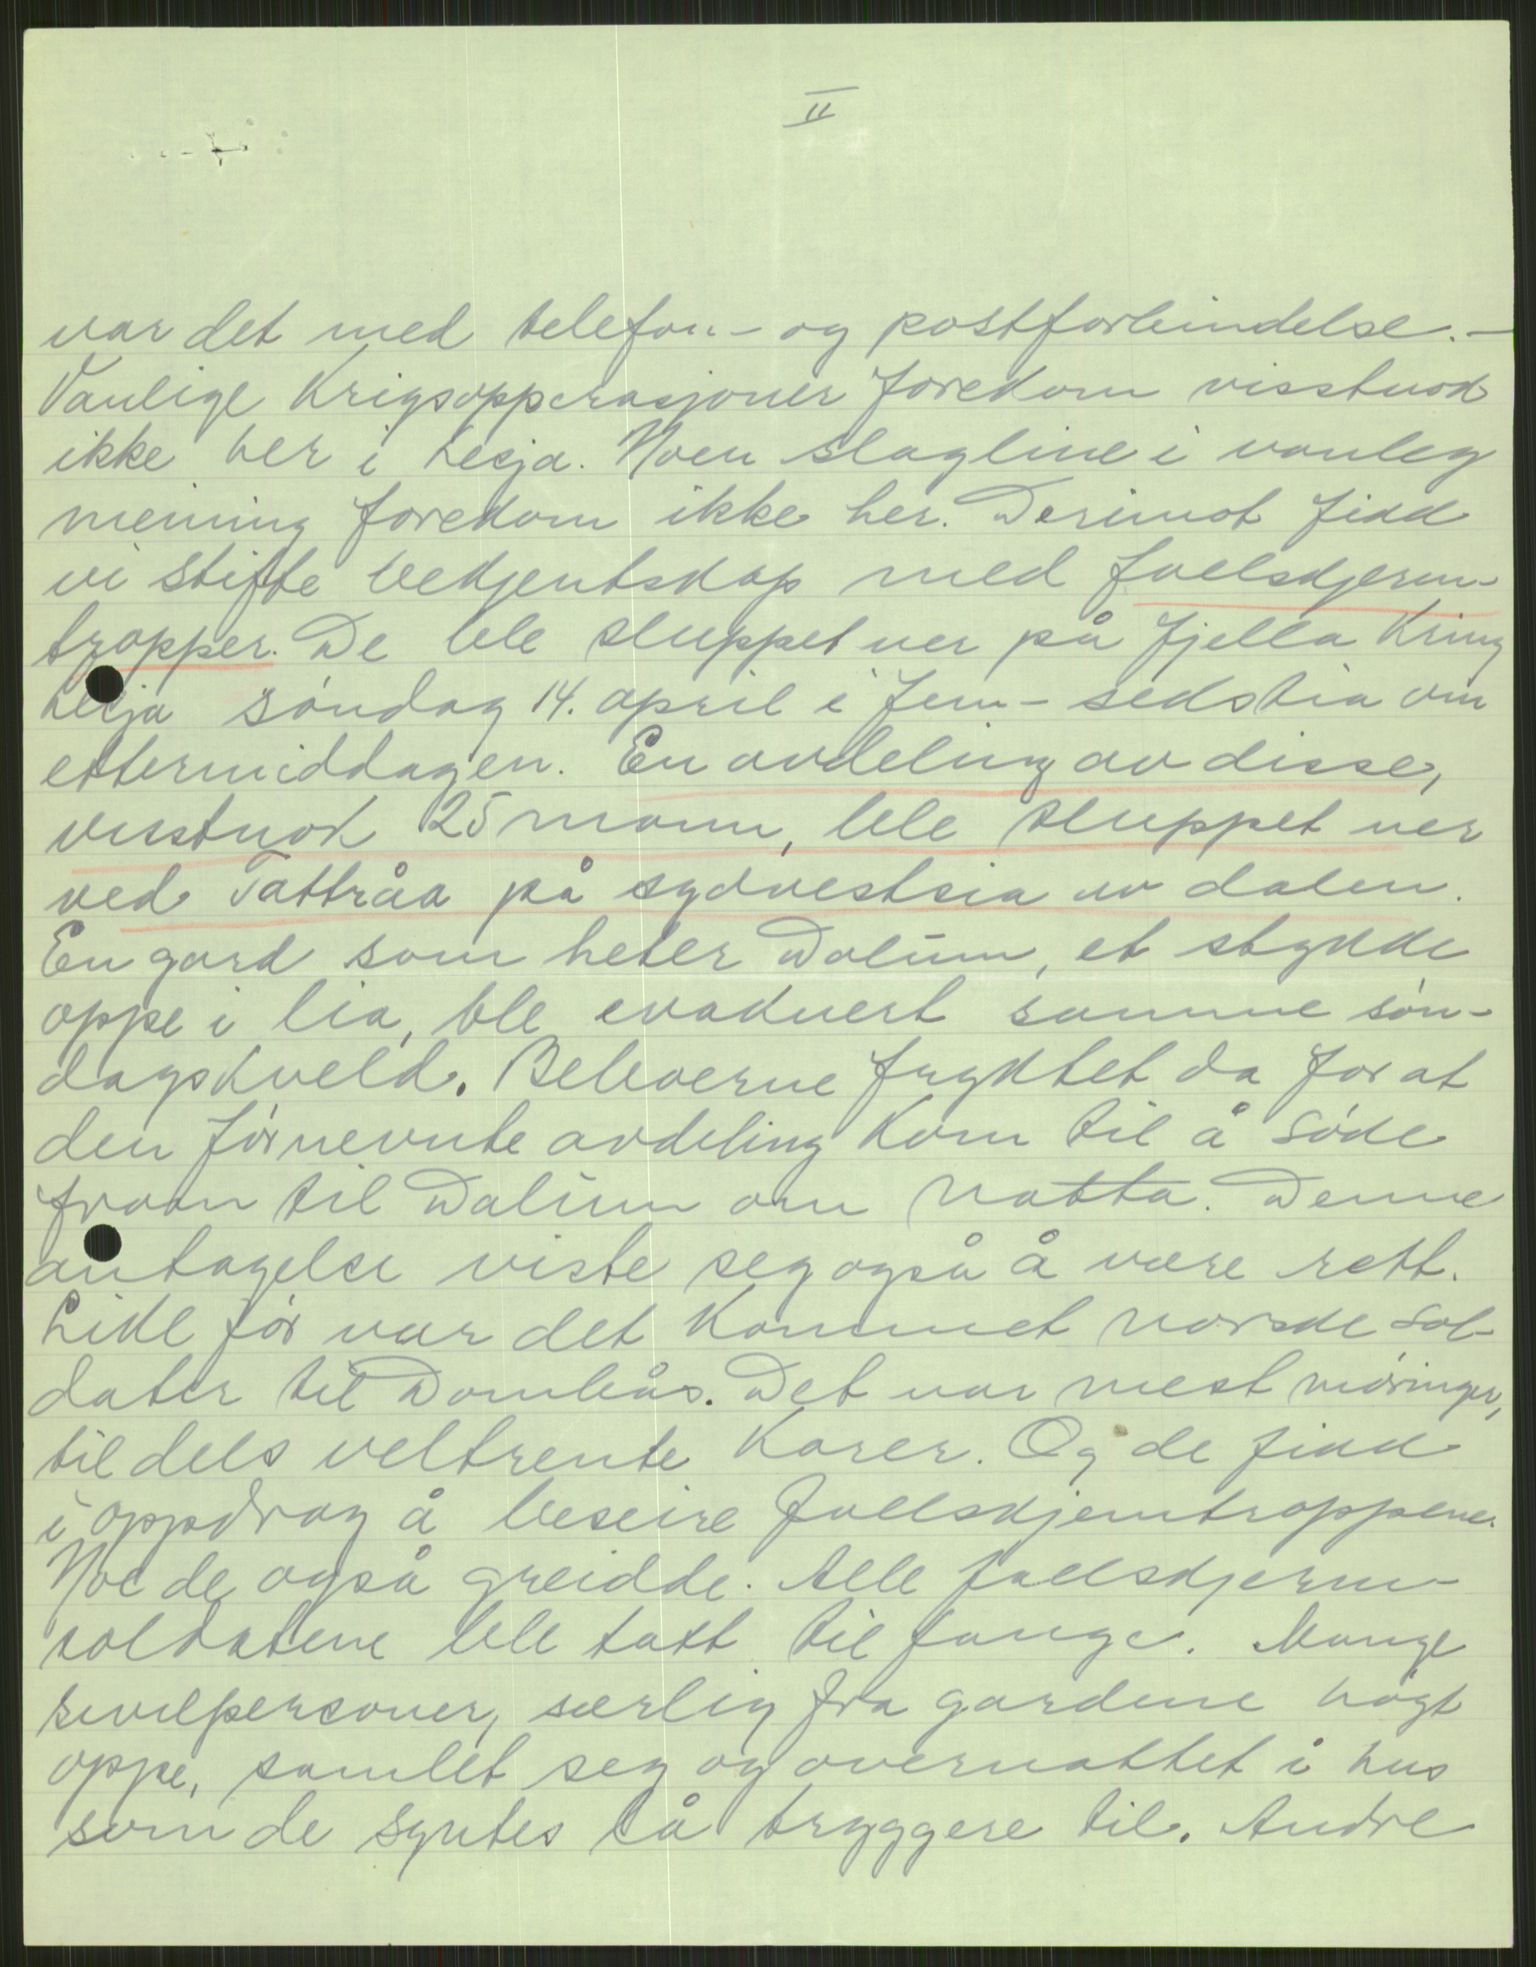 II
var det med telefon- og postforbindelse.-
Vanlige Krigsopperasjoner forekom visstnok
ikke her i Lesja. Noen slagline i vanleg
meining forekom ikke her. Derimot fikk
vi stifte bekjentskap med faelskjerm-
tropper. De ble sluppet ner på fjella Kring
Lesja søndag 14. april i fem-sekstia om
ettermiddagen. En avdeling av disse,
visstnok 25 mann, ble sluppet ner
ved Tattråa på sydvestsia av dalen.
En gard som heter Dalum, et stykke
oppe i lia, ble evakuert samme søn-
dagskveld. Beboerne fryktet da for at
den førnevnte avdeling kom til å søke
fram til Dalum om natta. Denne
antagelse viste seg også å være rett.
Like før var det kommet norske sol-
dater til Dombås. Det var mest møringer,
til dels veltrente Karer. Og de fikk
i oppdrag å beseire fallskjermtroppene.
Noe de også greidde. Alle fallskjerm-
soldatene ble tatt til fange. Mange
sivilpersoner, særlig fra gardene høgt
oppe, samlet seg og overnattet i hus
som de syntes så tryggere til. Andre